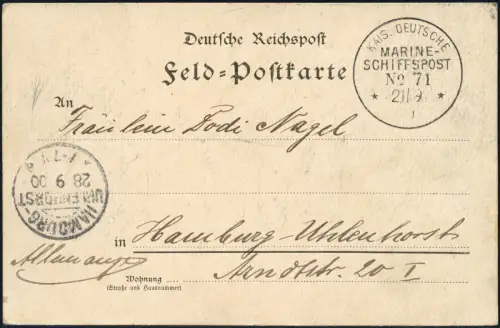 Deutsche Reichspost
Feld-Postkarte
KAIS. DEUTSCHE
MARINE-
SCHIFFSPOST
No 71
* 21/9 *
An
Fräulein Dodi Nagel
HAMBURG-
UHLENHORST
28 9 00
* 1-7 V. *
in Hamburg-Uhlenhorst
Arndtstr. 20 I
Wohnung
(Straße und Hausnummer)